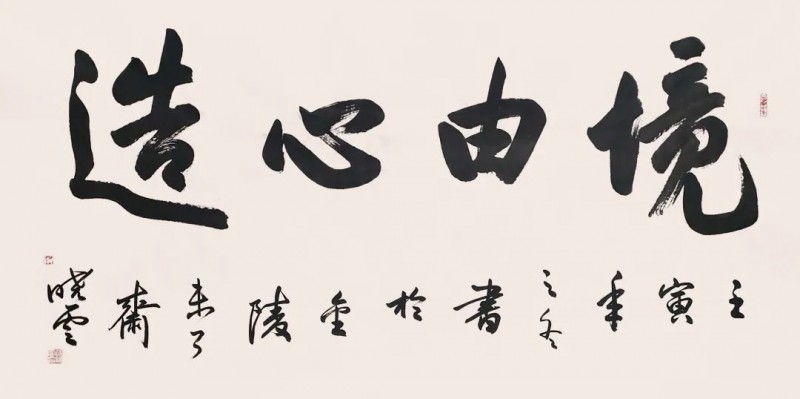 境由心造
壬寅年之冬書於金陵未了齋曉雲